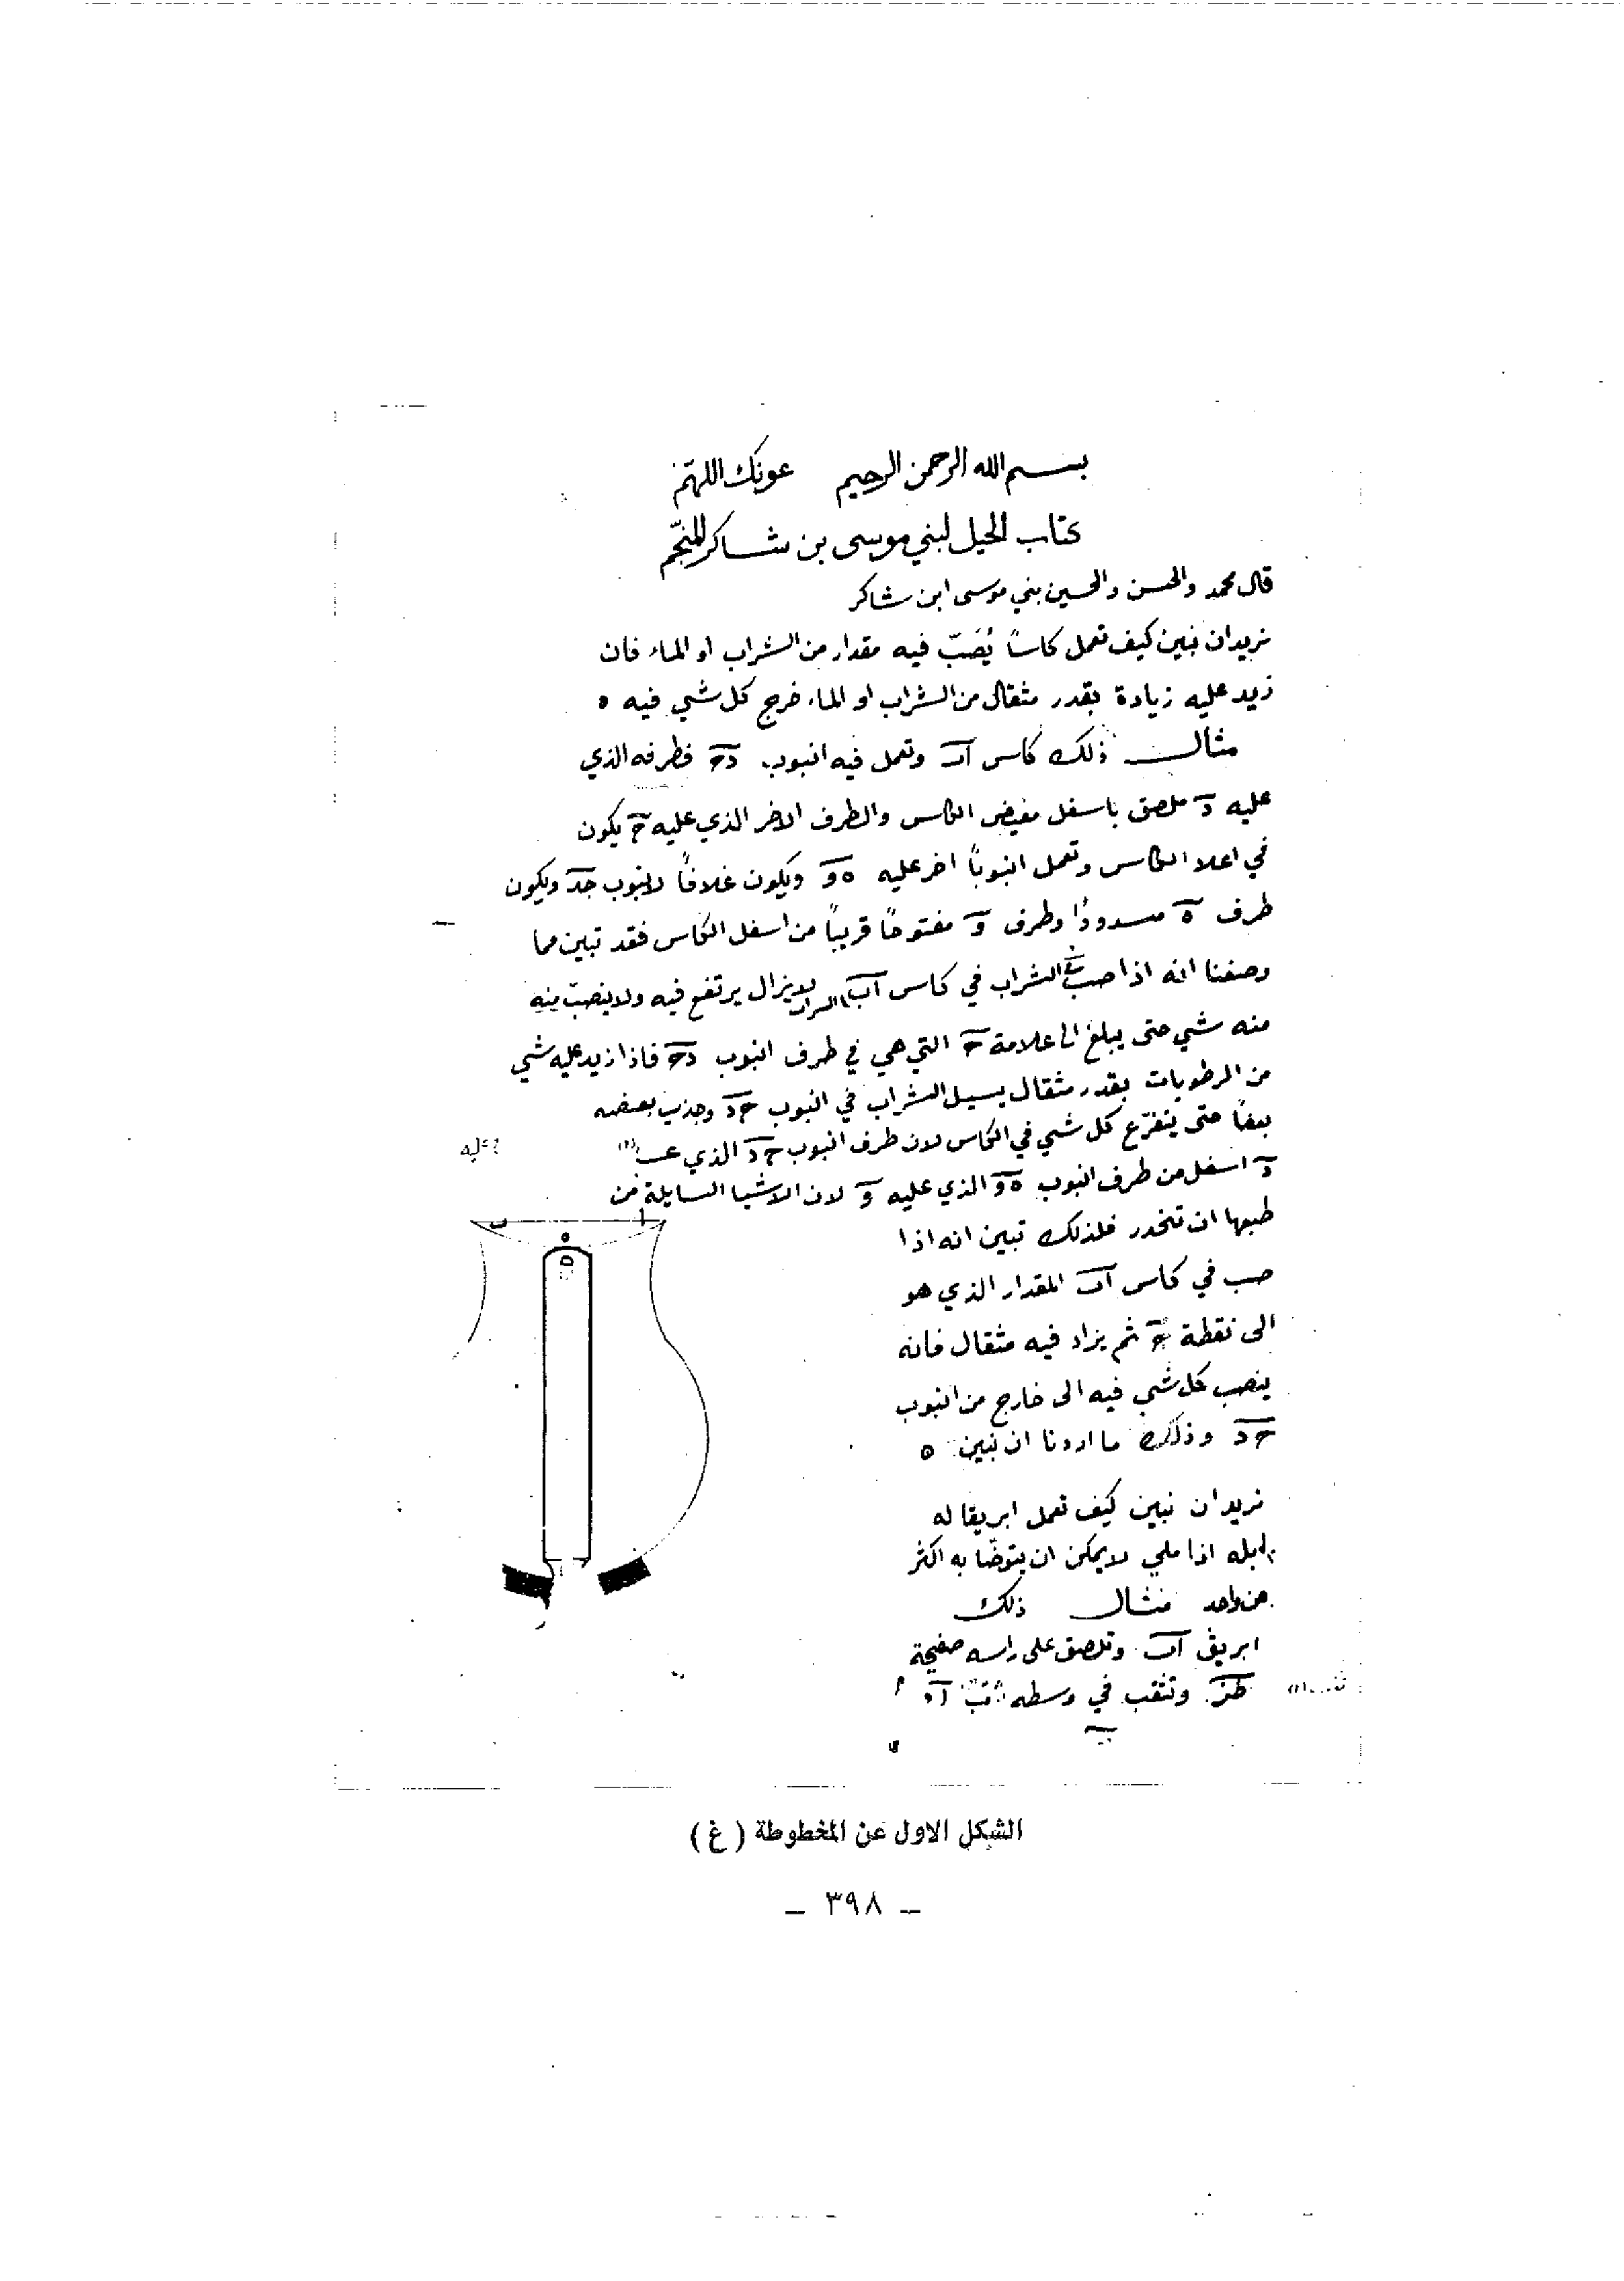 بسم الله الرحمن الرحيم عونك اللهم
كتاب الحيل لبني موسى بن شاكر المنجم
قال محمد والحسن والحسين بني موسى ابن شاكر
نريد ان نبين كيف نعمل كاساً يُصَبّ فيه مقدار من الشراب او الماء فان
زيد عليه زيادة بقدر مثقال من الشراب او الماء خرج كل شي فيه ه
مثال ذلك كاس اب ونعمل فيه انبوب دح فطرفه الذي
عليه د ملصق باسفل مغيض الكاس والطرف الاخر الذي عليه ح يكون
في اعلا الكاس ونعمل انبوباً اخر عليه هو ويكون غلافاً لانبوب جد ويكون
طرف ه مسدودًا وطرف و مفتوحًا قريباً من اسفل الكاس فقد تبين مما
وصفنا انه اذا صب الشراب في كاس اب لا يزال يرتفع فيه ولا ينصب منه
منه شي حتى يبلغ الى علامة ح التي هي في طرف انبوب دح فاذا زيد عليه شي
من الرطوبات بقدر مثقال يسيل الشراب في انبوب حد وجذب بعضه
بعضًا حتى يتفرّع كل شي في الكاس لان طرف انبوب حد الذي عـ (١)
عليه
د اسفل من طرف انبوب هو الذي عليه و لان الاشيا السايلة من
طبعها ان تنحدر فلذلك تبين انه اذا
صب في كاس اب المقدار الذي هو
الى نقطة ح ثم يزاد فيه مثقال فانه
ينصب كل شي فيه الى خارج من انبوب
حد وذلك ما اردنا ان نبين ه
نريد ان نبين كيف نعمل ابريقا له
بلبله اذا ملي لا يمكن ان يتوضّا به اكثر
من واحد مثال ذلك
ابريق اب ونلصق على راسه صفيحة
طز ونثقب في وسطه
ب ا
ه
الشكل الاول عن المخطوطة (غ)
– ٣٩٨ –